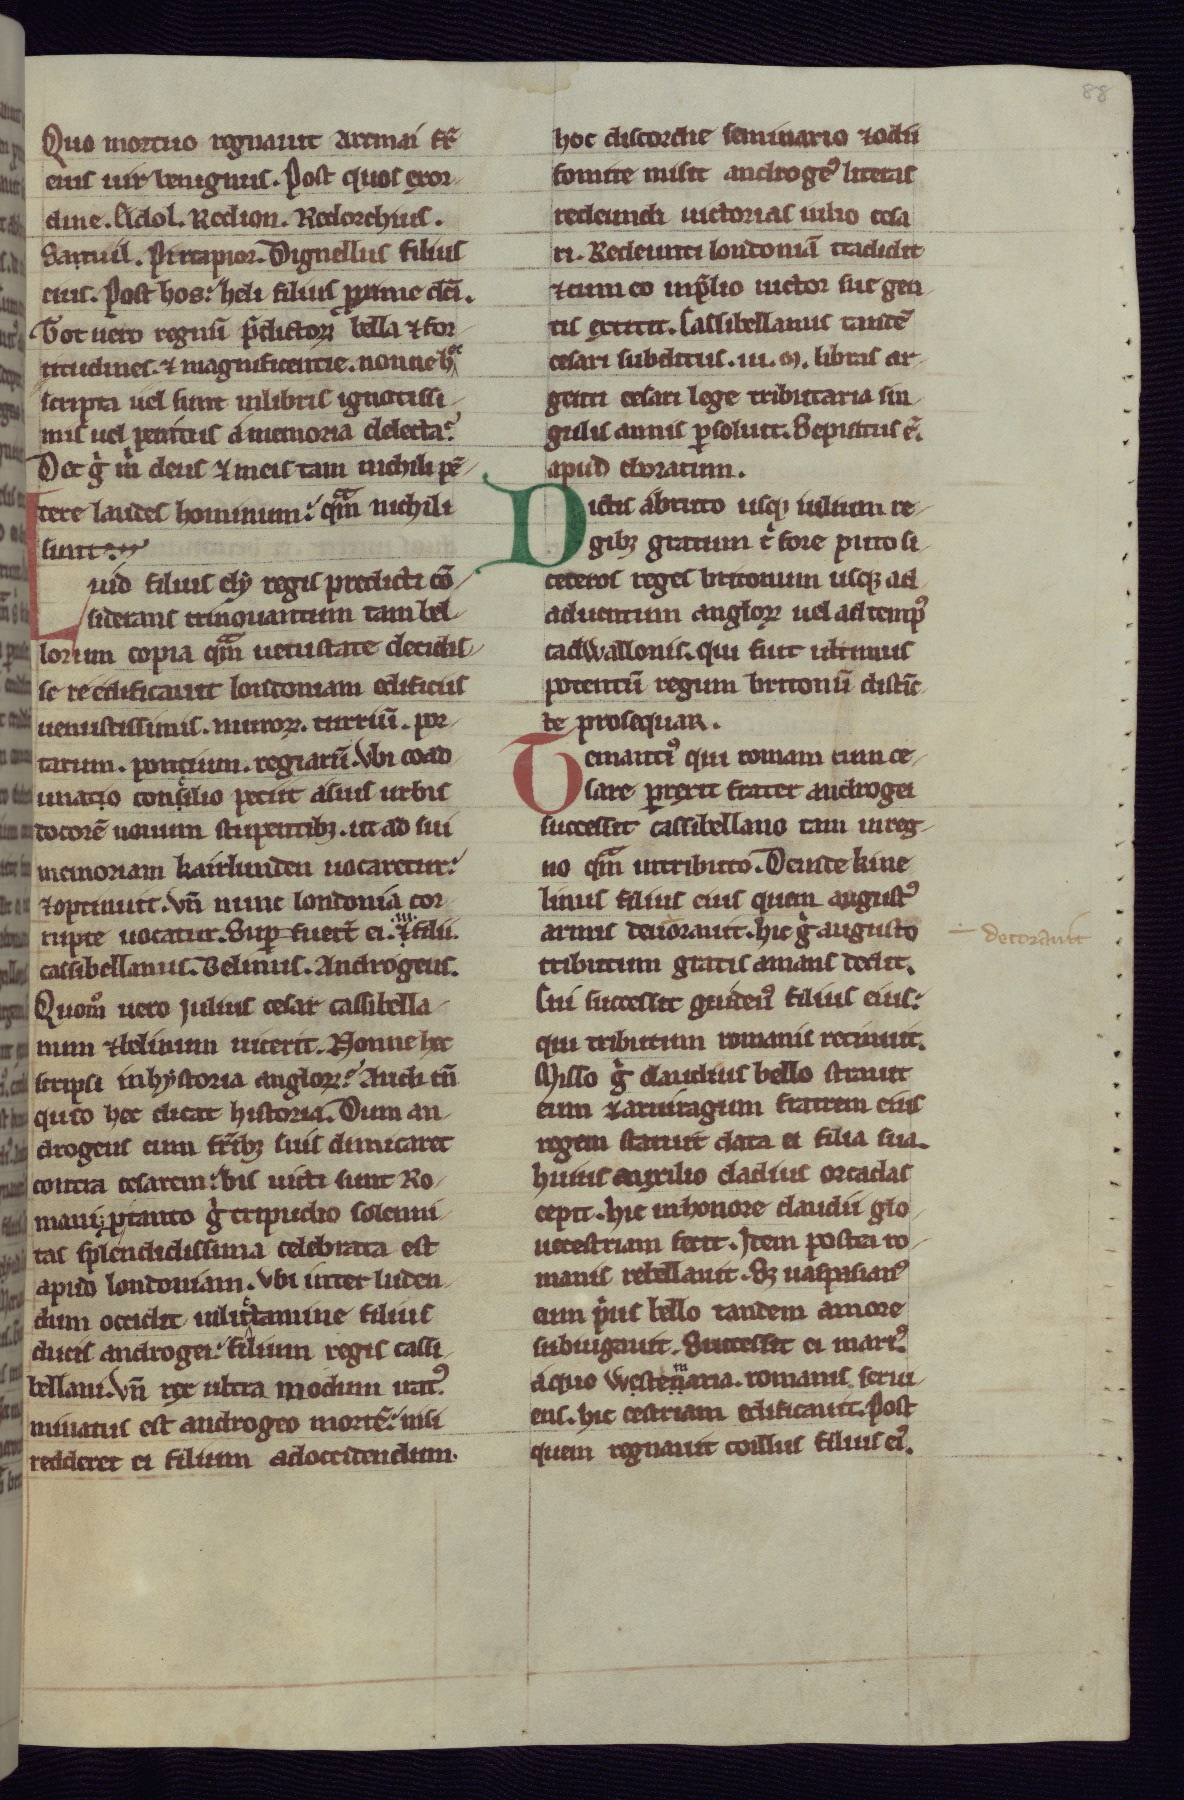 88
Quo mortuo regnauit Arcmai fr̃
eius uir benignus. Post quos exor-
dine. Eldol. Redion. Rodorchius.
Samuil. Pirtapior. Dignellus filius
eius. Post hos: heli filius p̲rime dc̃i.
Tot uero regnũ p̃dictoꝝ bella ⁊ for-
titudines. ⁊ magnificentie. nonne hᵉᶜ
scripta uel sunt inlibris ignotissi-
mis uel penitus a memoria delecta?
Det gͥ m̃ deus ⁊ meis tam nichili pẽ-
tere laudes hominum: qᵃm̃ nichili
sunt.
Luid filius ely regis predicti cõ
siderans trinouantum tam bel-
lorum copia qᵃm̃ uetustate decidis-
se reedificauit londoniam edificiis
uenustissimis. muroꝝ. turriũ. por-
tarum. pontium. regiarũ. Vbi coad
unatio consilio petiit asuis urbis
tocorẽ nouum stupentibꝫ. ut ad sui
memoriam kairlunden uocaretur:
⁊optinuit. vñ nunc londonia cor-
rupte uocatur. Sup̲ fuer̃t ei .iii. filii.
cassibellanus. Belinus. Androgeus.
Quom̊ uero Julius cesar cassibella-
num ⁊belinum uicerit. Nonne hec
scripsi inhystoria angloꝝ? Audi tñ
quid hec dicat historia. Dum an-
drogeus cum fr̃ibꝫ suis dimicaret
contra cesarem: bis uicti sunt Ro-
mani. ptanto gͥ tripudio solenni-
tas splendidissima celebrata est
apud londoniam. vbi inter luden-
dum occidit inlictamine filius
ducis androgei: filium regis cassi-
bellani. vñ rex ultra modum iratꝰ
minatus est androgeo mortẽ: nisi
redderet ei filium adoccidendum.
hoc discordie seminario ⁊odii
fomite misit androgeꝰ literas
redeundi uictorias iulio cesa
ri. Redeunti londoniã tradidit
⁊cum eo inp̃lio uictor sue gen
tis extitit. Cassibellanus tandẽ
cesari subditus. iii. M. libras ar-
genti cesari lege tributaria sin-
gulis annis p̲soluit. Sepultus ẽ.
apud eboracum.
Dictis abruto usqꝫ iulium re-
gibꝫ gratum t̃ fore puto si
ceteros reges britonum usqꝫ ad
aduentum angloꝝ uel ad tempꝰ
cadwallonis. qui fuit ultimus
potentũ regum britonũ distĩc
te prosequar.
Temantiꝰ qui romam cum ce-
sare p̲rexit frater androgei
successit cassibellano tam inreg-
no qᵃm̃ intributo. Deinde kine
linus filius eius quem augustꝰ
armis deuorauit. hic gͥ augusto
tributum gratis amans dedit.
Cui successit guiderꝰ filius eius:
qui tributum romanis retinuit.
Misso gͥ claudius bello strauit
eum ⁊aruiragum fratrem eius
regem statuit data ei filia sua.
huius auxilio cladius orcadas
cepit. hic inhonore claudii glo-
uecestriam fecit. Item postea ro-
manis rebellauit. Sꝫ uaspasianꝰ
eum pͥus bello tandem amore
subiugauit. Successit ei mariꝰ.
aquo westemaria. romanis serui-
ens. hic cestriam edificauit. Post
quem regnauit coillus filius eiꝰ.
decorauit